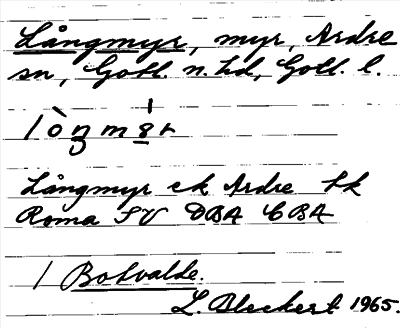 Långmyr, myr, Ardre
sn, Gotl. n. hd, Gotl. l.
Långmyr ek Ardre hk
Roma SV DBA CBA
1 Botvalde.
L. Bleckert 1965.